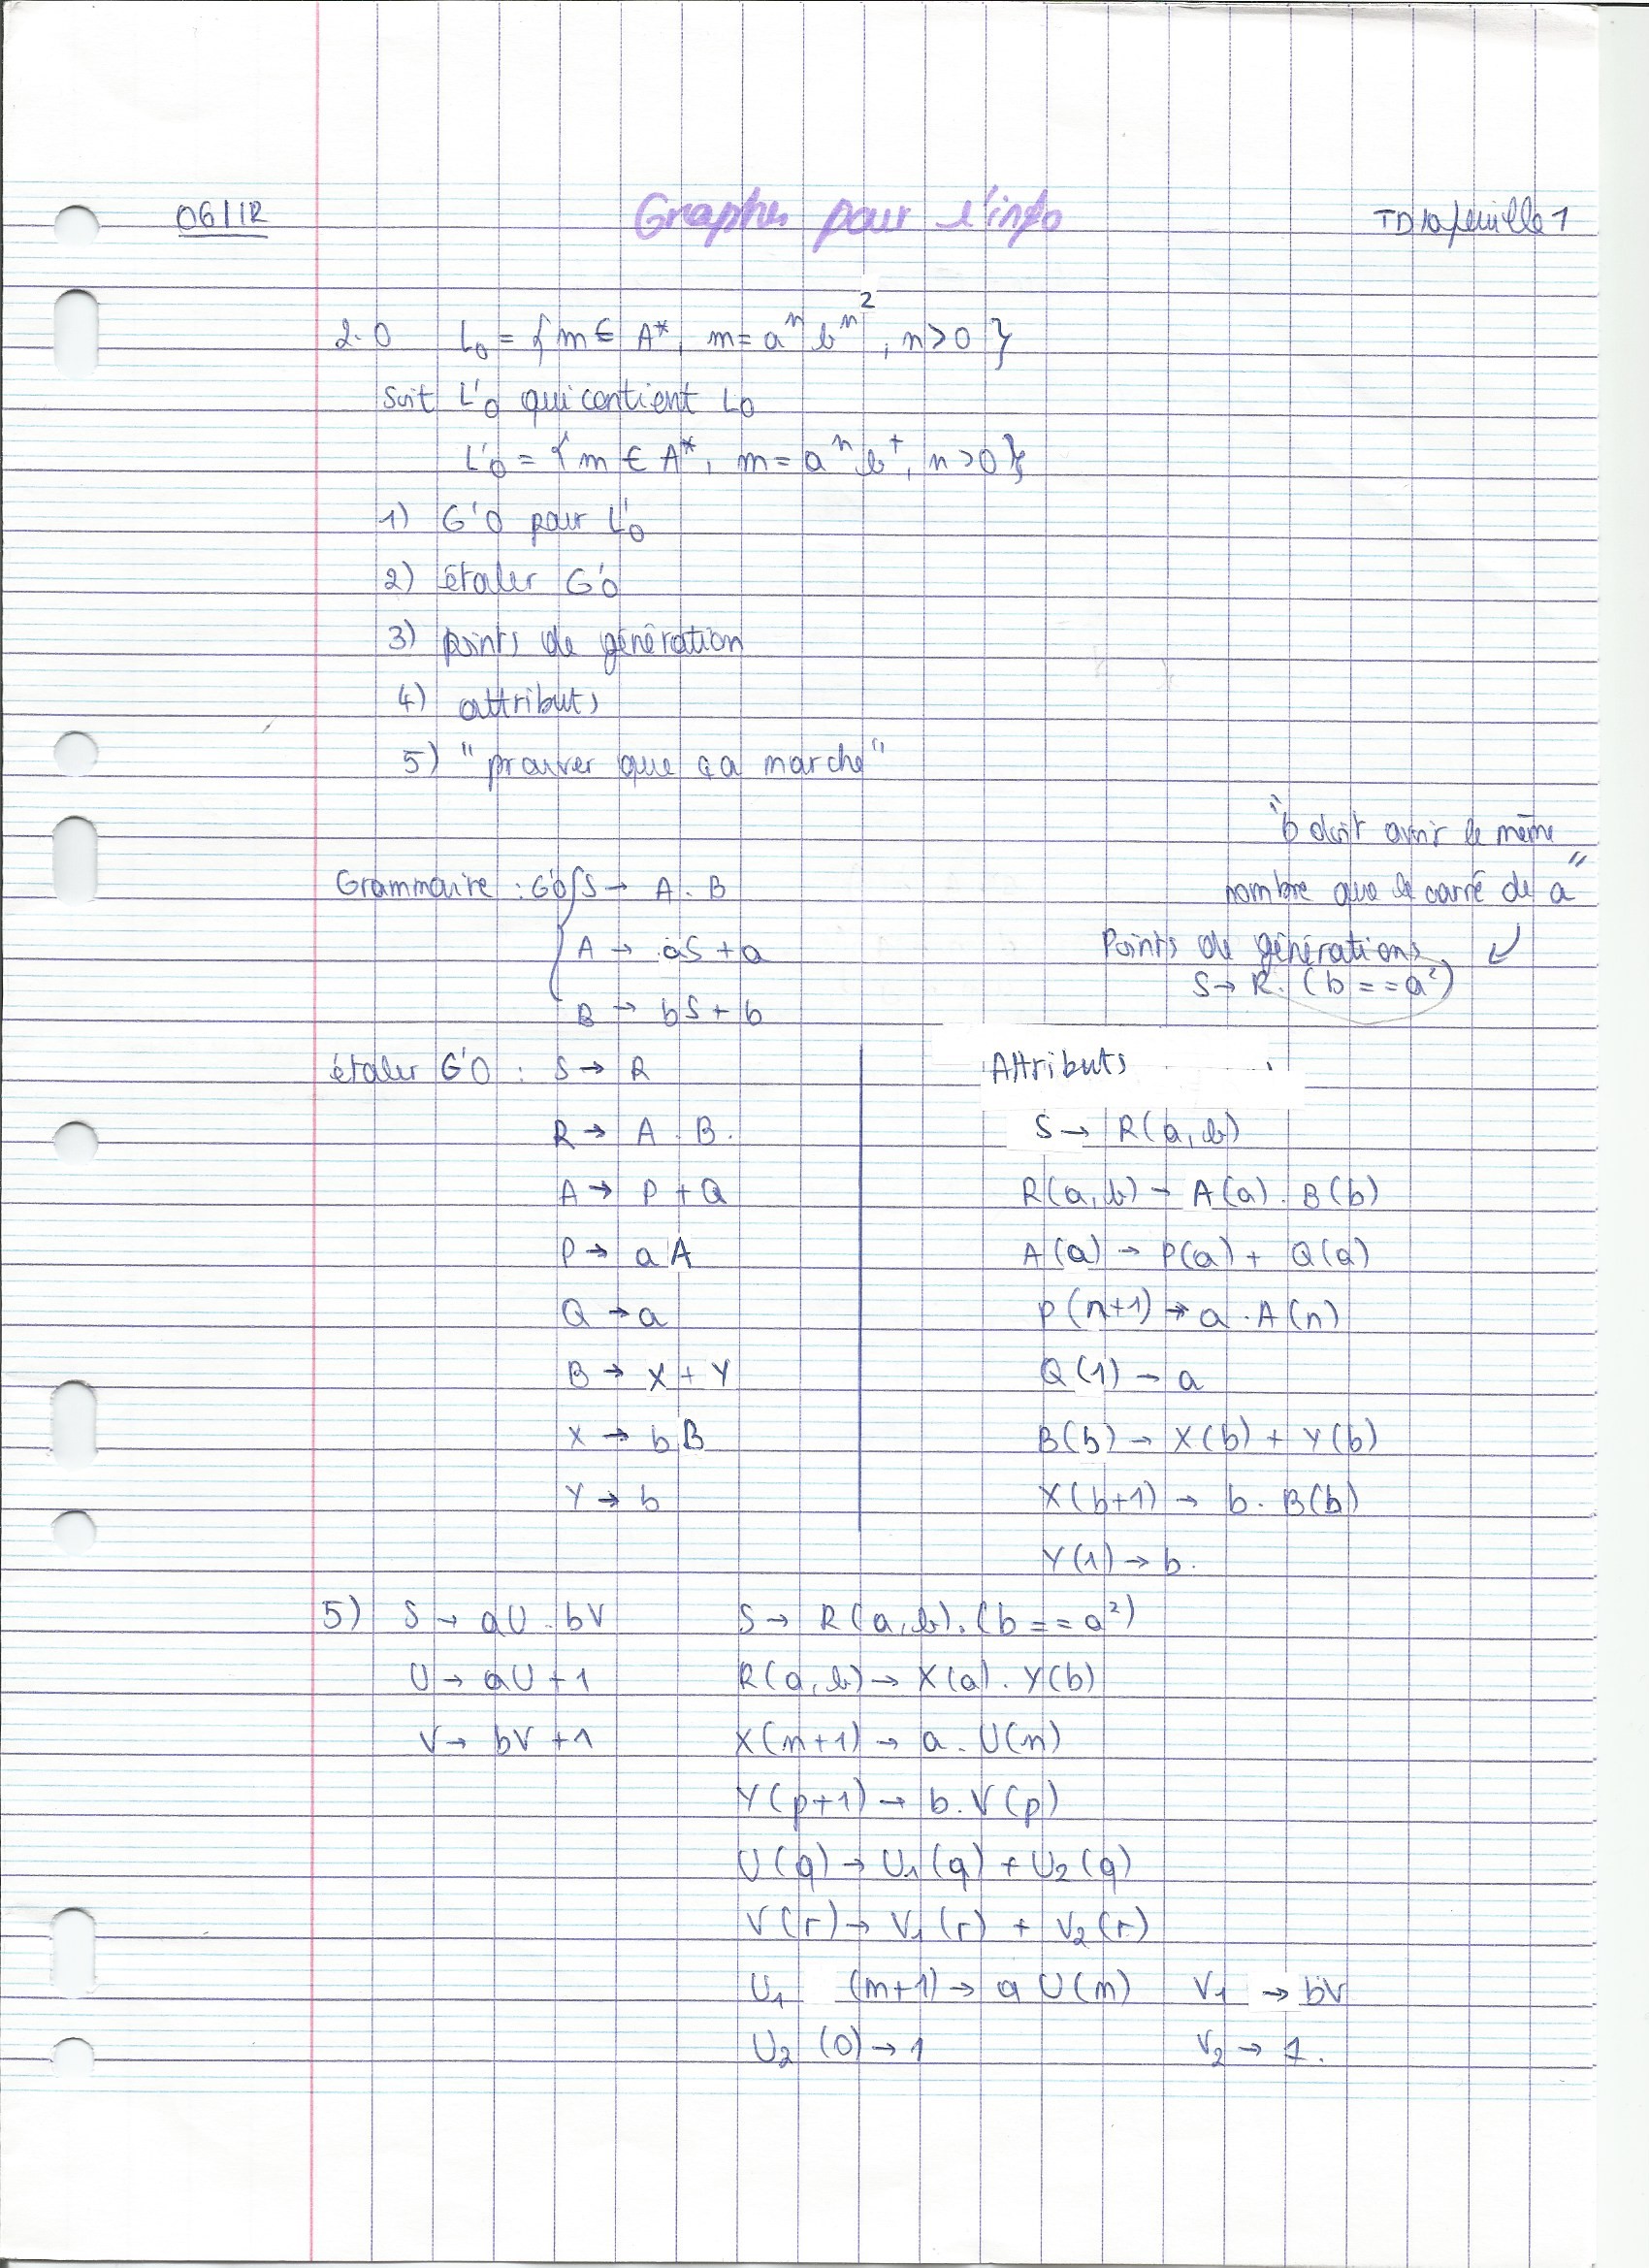 06/12 Graphes pour l'info TD10 feuille 1
2.0 L₀ = { m ∈ A*, m = aⁿ bⁿ², n>0 }
Soit L'₀ qui contient L₀
L'₀ = { m ∈ A*, m = aⁿ b⁺, n>0 }
1) G'0 pour L'₀
2) étaler G'0
3) points de génération
4) attributs
5) "prouver que ça marche"
"b doit avoir le même
nombre que le carré de a"
Grammaire : G'0 { S → A . B
A → aS + a
B → bS + b
Points de générations
S → R. (b == a²)
étaler G'0 : S → R
R → A . B.
A → P + Q
P → a A
Q → a
B → X + Y
X → b B
Y → b
Attributs
S → R(a, b)
R(a, b) → A(a) . B(b)
A(a) → P(a) + Q(a)
P(n+1) → a . A(n)
Q(1) → a
B(b) → X(b) + Y(b)
X(b+1) → b. B(b)
Y(1) → b.
5) S → aU . bV S → R(a, b). (b == a²)
U → aU + 1 R(a, b) → X(a) . Y(b)
V → bV + 1 X(n+1) → a . U(n)
Y(p+1) → b. V(p)
U(q) → U₁(q) + U₂(q)
V(r) → V₁(r) + V₂(r)
U₁ (m+1) → a U(m) V₁ → bV
U₂ (0) → 1 V₂ → 1.